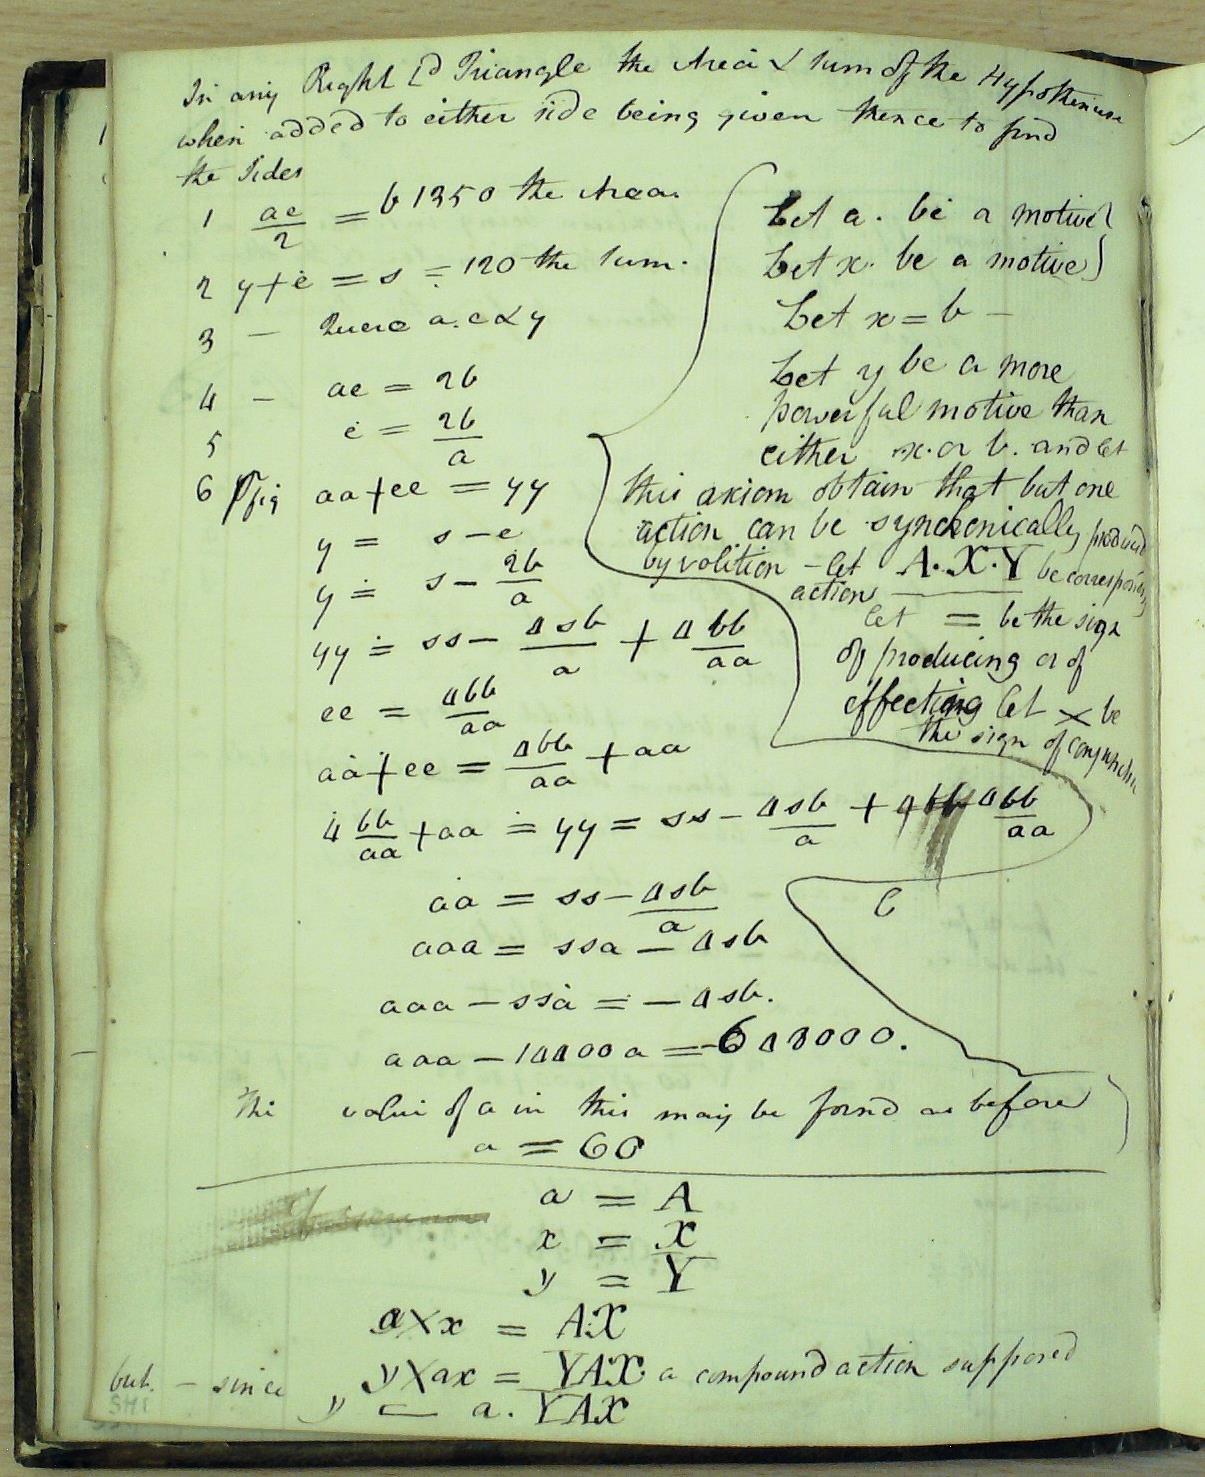 In any Right Ld Triangle the Area & sum of the Hypothenuse
when added to either side being given thence to find
the Sides
1 ae/2 = b 1350 the Area.
2 y+e = s = 120 the sum.
3 – Quere a. e & y
4 – ae = 2b
5 e = 2b/a
6 fig aa+ee = yy
y = s-e
y = s - 2b/a
yy = ss - 4sb/a + 4bb/aa
ee = 4bb/aa
aa+ee = 4bb/aa + aa
4 bb/aa + aa = yy = ss - 4sb/a + 4bb 4bb/aa
aa = ss - 4sb/a
aaa = ssa - 4sb
aaa - ssa = - 4sb.
aaa - 14400 a = -648000.
The value of a in this may be found as before
a = 60
Let a. be a motive
Let x. be a motive
Let x = b –
Let y be a more
powerful motive than
either x. or b. and let
this axiom obtain that but one
action can be synchonically produced
by volition – let A. X. Y be corresponding
actions
let = be the sign
of producing or of
effecting let × be
the sign of conjunction
6
a = A
x = X
y = Y
a×x = A:X
y×ax = YAX a compound action supposed
but. – since y = a. YAX
SHI